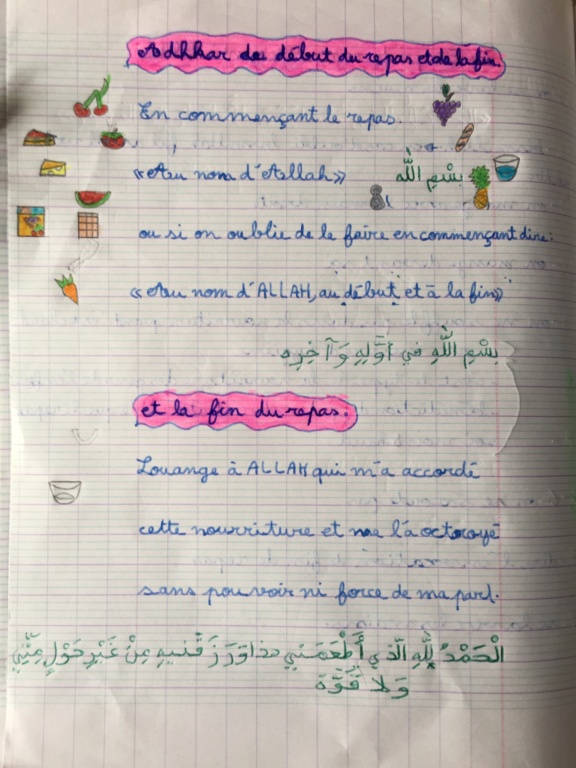 Adhkar de début du repas et de la fin.
En commençant le repas.
«Au nom d'Allah» بِسْمِ اللَّه
ou si on oublie de le faire en commençant dire:
«Au nom d'ALLAH, au début et à la fin»
بِسْمِ اللَّهِ في أَوَّلِهِ وَآخِرِه
et la fin du repas.
Louange à ALLAH qui m'a accordé
cette nourriture et me l'a octroyé
sans pouvoir ni force de ma part.
الْحَمْدُ لِلَّهِ الَّذي أَطْعَمَني هذا وَرَزَقَنيهِ مِنْ غَيْرِ حَوْلٍ مِنِّي
وَلا قُوَّة